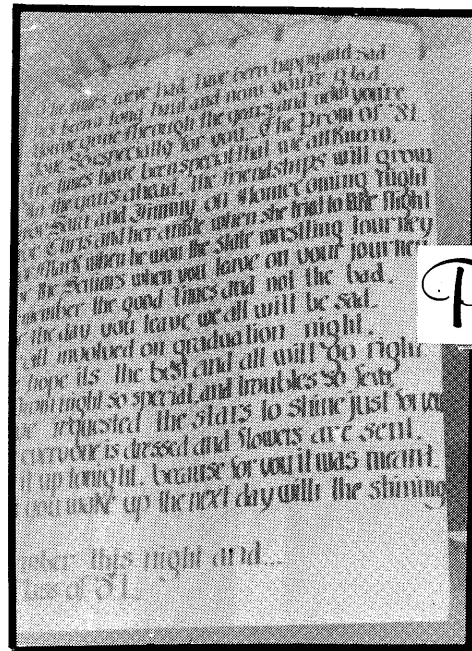 The times weve had, have been happy and sad
been a long haul and now you're glad.
gone through the years and now you're
so specially for you... The Prom of '81.
the times have been special that we all know,
the years ahead, the friendships will grow
and Jimmy on Homecoming night
Chris and her ankle when she tried to take flight
Mark when he won the State wrestling tourney
the Seniors when you leave on your journey
member the good times and not the bad.
the day you leave we all will be sad.
all involved on graduation night.
hope its the best and all will go right
night so special, and troubles so few,
requested the stars to shine just for you
everyone is dressed and flowers are sent.
it up tonight, because for you it was meant.
you wake up the next day with the shining
this night and...
lass of '81.
P